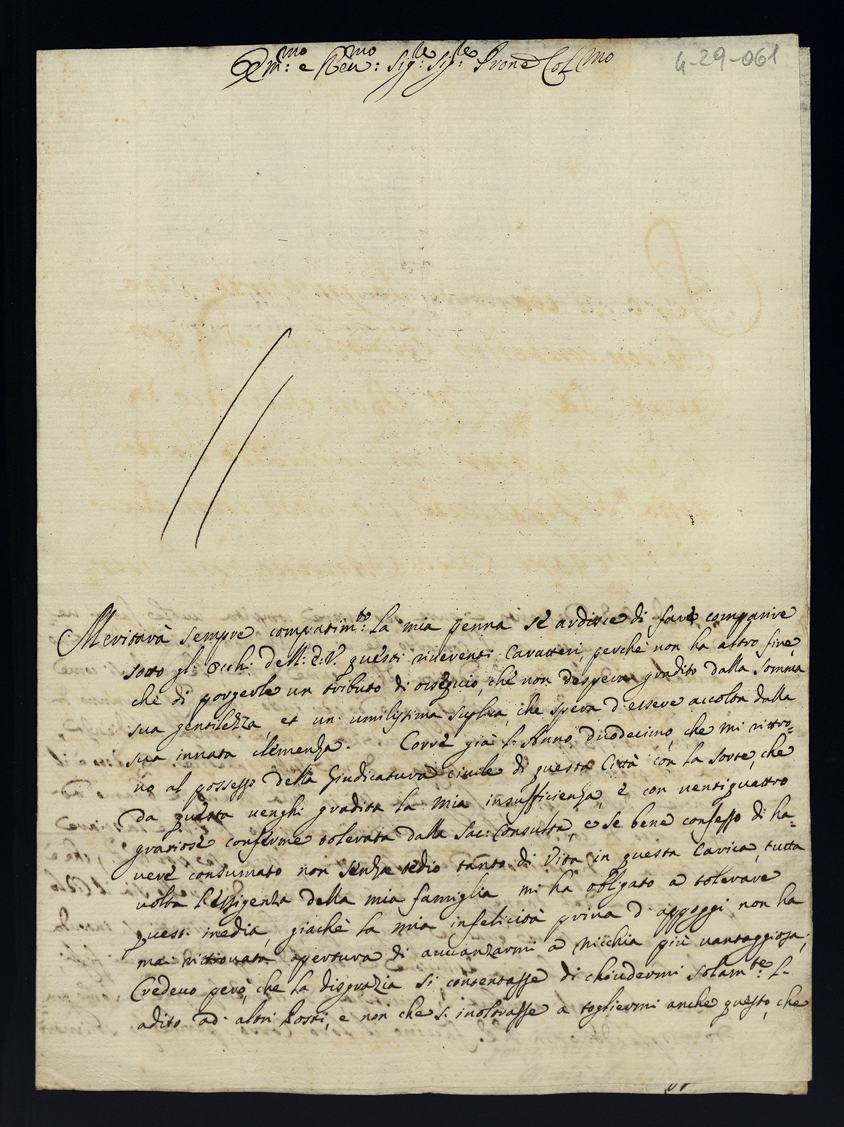 Em:mo e Rev:mo Sig:re Sig:re Prone Col:mo
4-29-061
Meritarà sempre compatim:to la mia penna s'è ardisce di fare comparire
sotto gl'Occhi dell':E:V: questi riverenti Caratteri, perche non ha altro fine,
che di porgerle un tributo di ossequio, che non despera gradito dalla Somma
sua gentilezza et un' umilissima suplica, che spera d'essere accolta dalla
sua innata clemenza. Corre già l'Anno duodecimo, che mi ritro-
vo al possesso della Giudicatura civile di questa Città con la sorte, che
da questa venghi gradita la mia insufficienza, e con ventiquattro
graziose conferme tolerata dalla Sac: Consulta, e se bene confesso di ha-
vere consumato non senza tedio tanto di Vita in questa Carica, tutta
volta l'essigenza della mia famiglia mi ha obligato a tolerare
questi inedia, giachè la mia infelicità priva d'appoggi non ha
mai ritrovata apertura di avvanzarmi a nicchia più vantaggiosa;
Credevo però, che la disgrazia si consentasse di chiudermi solam:te l'-
adito ad altri Posti, e non che s'inoltrasse a togliermi anche questo, che